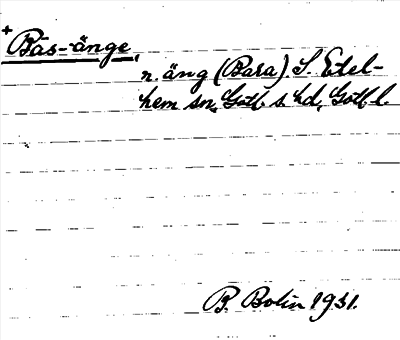 +Bås-änge,
n. äng (Bara). S. Etel-
hem sn, Gotl. s. hd, Gotl. l.
B. Bolin 1931.